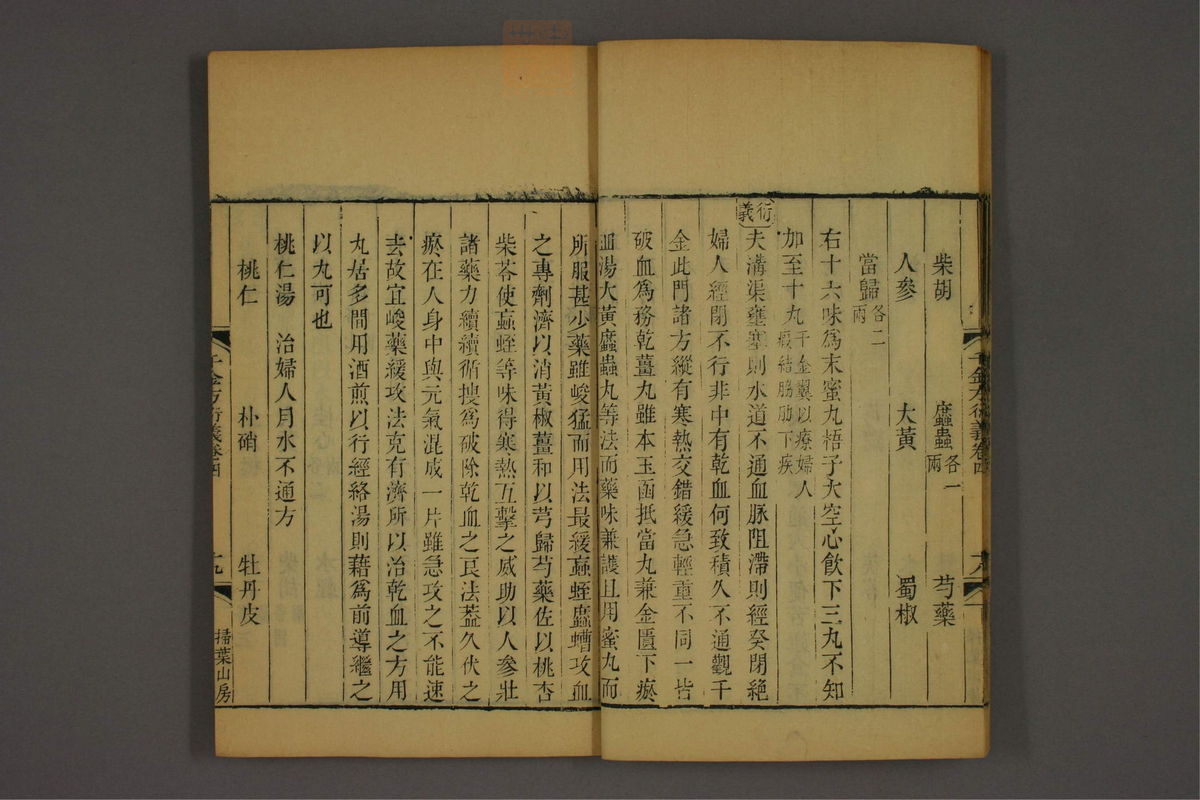 柴胡　䗪蟲各一兩　芍藥
人參　大黃　蜀椒
當歸各二兩
右十六味爲末蜜丸梧子大空心飲下三丸不知
加至十丸千金翼以療婦人瘕結脇肋下疾
衍義 夫溝渠壅塞則水道不通血脉阻滯則經癸閉絶
婦人經閉不行非中有乾血何致積久不通觀千
金此門諸方縱有寒熱交錯緩急輕重不同一皆
破血爲務乾薑丸雖本玉函抵當丸兼金匱下瘀
血湯大黃䗪蟲丸等法而藥味兼護且用蜜丸而
所服甚少藥雖峻猛而用法最緩蝱蛭䗪螬攻血
之專劑濟以消黃椒薑和以芎歸芍藥佐以桃杏
柴苓使蝱蛭等味得寒熱互擊之威助以人參壯
諸藥力續續循搜爲破除乾血之良法蓋久伏之
瘀在人身中與元氣混成一片雖急攻之不能速
去故宜峻藥緩攻法克有濟所以治乾血之方用
丸居多間用酒煎以行經絡湯則藉爲前導繼之
以丸可也
桃仁湯　治婦人月水不通方
桃仁　朴硝　牡丹皮
千金方衍義卷四
九
掃葉山房